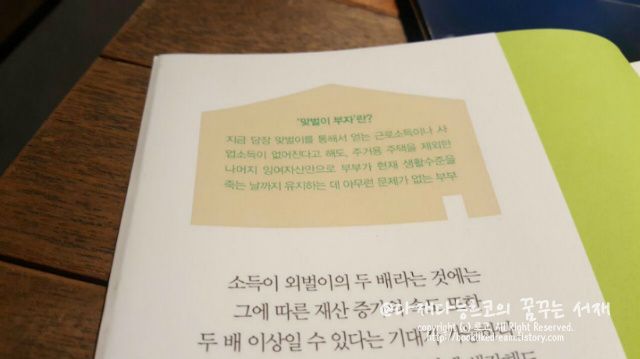 '맞벌이 부자'란?
지금 당장 맞벌이를 통해서 얻는 근로소득이나 사
업소득이 없어진다고 해도, 주거용 주택을 제외한
나머지 잉여자산만으로 부부가 현재 생활수준을
죽는 날까지 유지하는 데 아무런 문제가 없는 부부
소득이 외벌이의 두 배라는 것에는
그에 따른 재산
두 배 이상일 수 있다는 기대가
@다재다능르코의 꿈꾸는 서재
copyright (c) 르코 All Rights Reserved.
http://booklikedream.tistory.com